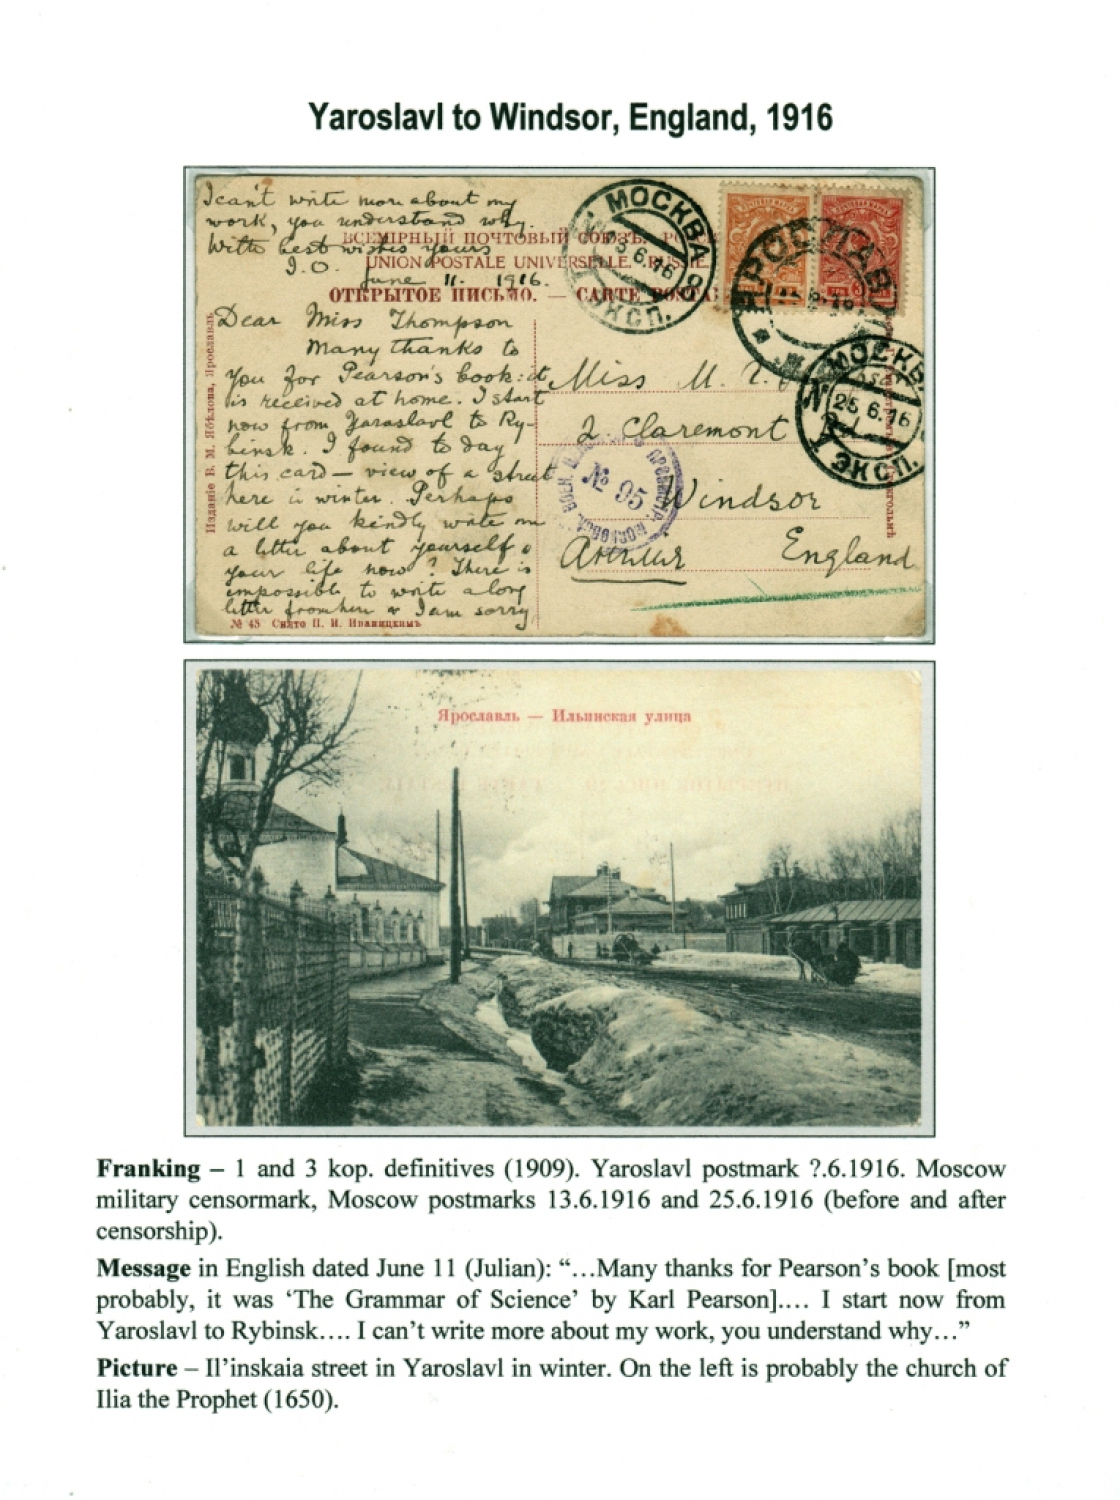 Yaroslavl to Windsor, England, 1916
I can't write more about my
work, you understand why.
With best wishes yours
I.O.
June 11. 1916.
ВСЕМІРНЫЙ ПОЧТОВЫЙ СОЮЗЪ.
UNION POSTALE UNIVERSELLE. RUSSIE.
ОТКРЫТОЕ ПИСЬМО. — CARTE POSTA
МОСКВА
6.16
ЭКСП.
ЯРОСЛАВЛ
МОСКВ
25 6.16
ЭКСП.
Dear Miss Thompson
Many thanks to
you for Pearson's book: it
is received at home. I start
now from Yaroslavl to Ry-
binsk. I found to day
this card – view of a street
here in winter. Perhaps
will you kindly write me
a letter about yourself &
your life now? There is
impossible to write a long
letter from here & I am sorry
Miss M.
2. Claremont
Windsor
Англия England
№ 95
Изданіе В. М. Яблова, Ярославль
№ 45 Снято П. И. Иваницкимъ
Ярославль — Ильинская улица
Franking – 1 and 3 kop. definitives (1909). Yaroslavl postmark ?.6.1916. Moscow
military censormark, Moscow postmarks 13.6.1916 and 25.6.1916 (before and after
censorship).
Message in English dated June 11 (Julian): “…Many thanks for Pearson’s book [most
probably, it was ‘The Grammar of Science’ by Karl Pearson]…. I start now from
Yaroslavl to Rybinsk…. I can’t write more about my work, you understand why…”
Picture – Il’inskaia street in Yaroslavl in winter. On the left is probably the church of
Ilia the Prophet (1650).